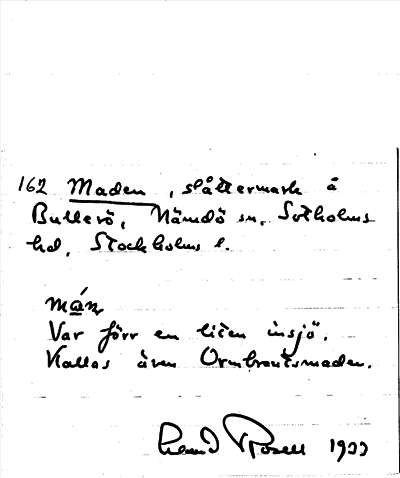 162 Maden, slåttermark å
Bullerö, Nämdö sn, Sotholms
hd, Stockholms l.
Var förr en liten insjö.
Kallas även Ormbrantsmaden.
Rosell 1933